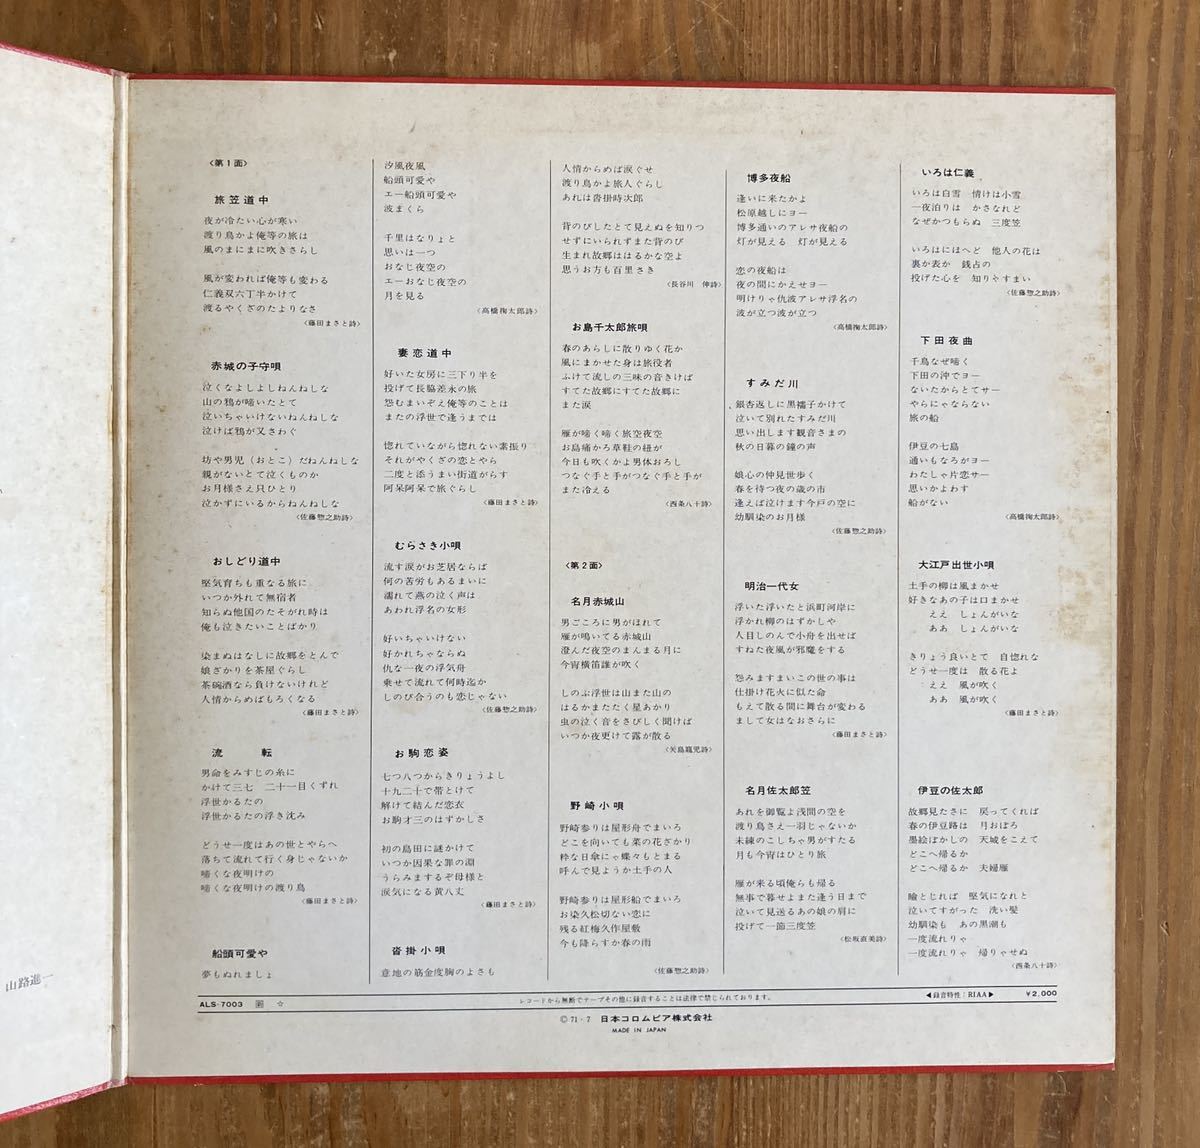 〈第1面〉
旅笠道中
夜が冷たい心が寒い
渡り鳥かよ俺等の旅は
風のまにまに吹きさらし
風が変われば俺等も変わる
仁義双六丁半かけて
渡るやくざのたよりなさ
〈藤田まさと詩〉
赤城の子守唄
泣くなよしよしねんねしな
山の鴉が啼いたとて
泣いちゃいけないねんねしな
泣けば鴉が又さわぐ
坊や男児（おとこ）だねんねしな
親がないとて泣くものか
お月様さえ只ひとり
泣かずにいるからねんねしな
〈佐藤惣之助詩〉
おしどり道中
堅気育ちも重なる旅に
いつか外れて無宿者
知らぬ他国のたそがれ時は
俺も泣きたいことばかり
染まぬはなしに故郷をとんで
娘ざかりを茶屋ぐらし
茶碗酒なら負けないけれど
人情からめばもろくなる
〈藤田まさと詩〉
流転
男命をみすじの糸に
かけて三七　二十一目くずれ
浮世かるたの
浮世かるたの浮き沈み
どうせ一度はあの世とやらへ
落ちて流れて行く身じゃないか
啼くな夜明けの
啼くな夜明けの渡り鳥
〈藤田まさと詩〉
船頭可愛や
夢もぬれましょ
汐風夜風
船頭可愛や
エー船頭可愛や
波まくら
千里はなりょと
思いは一つ
おなじ夜空の
エーおなじ夜空の
月を見る
〈高橋掬太郎詩〉
妻恋道中
好いた女房に三下り半を
投げて長脇差永の旅
怨むまいぞえ俺等のことは
またの浮世で逢うまでは
惚れていながら惚れない素振り
それがやくざの恋とやら
二度と添うまい街道がらす
阿呆阿呆で旅ぐらし
〈藤田まさと詩〉
むらさき小唄
流す涙がお芝居ならば
何の苦労もあるまいに
濡れて燕の泣く声は
あわれ浮名の女形
好いちゃいけない
好かれちゃならぬ
仇な一夜の浮気舟
乗せて流れて何時迄か
しのび合うのも恋じゃない
〈佐藤惣之助詩〉
お駒恋姿
七つ八つからきりょうよし
十九二十で帯とけて
解けて結んだ恋衣
お駒才三のはずかしさ
初の島田に謎かけて
いつか因果な罪の淵
うらみまするぞ母様と
涙気になる黄八丈
〈藤田まさと詩〉
沓掛小唄
意地の筋金度胸のよさも
人情からめば涙ぐせ
渡り鳥かよ旅人ぐらし
あれは沓掛時次郎
背のびしたとて見えぬを知りつ
せずにいられずまた背のび
生まれ故郷ははるかな空よ
思うお方も百里さき
〈長谷川　伸詩〉
お島千太郎旅唄
春のあらしに散りゆく花か
風にまかせた身は旅役者
ふけて流しの三味の音きけば
すてた故郷にすてた故郷に
また涙
雁が啼く啼く旅空夜空
お島痛かろ草鞋の紐が
今日も吹くかよ男体おろし
つなぐ手と手がつなぐ手と手が
また冷える
〈西条八十詩〉
〈第2面〉
名月赤城山
男ごころに男がほれて
雁が鳴いてる赤城山
澄んだ夜空のまんまる月に
今宵横笛誰が吹く
しのぶ浮世は山また山の
はるかまたたく星あかり
虫の泣く音をさびしく聞けば
いつか夜更けて露が散る
〈矢島寵児詩〉
野崎小唄
野崎参りは屋形舟でまいろ
どこを向いても菜の花ざかり
粋な日傘にゃ蝶々もとまる
呼んで見ようか土手の人
野崎参りは屋形船でまいろ
お染久松切ない恋に
残る紅梅久作屋敷
今も降らすか春の雨
〈佐藤惣之助詩〉
博多夜船
逢いに来たかよ
松原越しにヨー
博多通いのアレサ夜船の
灯が見える　灯が見える
恋の夜船は
夜の間にかえせヨー
明けりゃ仇波アレサ浮名の
波が立つ波が立つ
〈高橋掬太郎詩〉
すみだ川
銀杏返しに黒襦子かけて
泣いて別れたすみだ川
思い出します観音さまの
秋の日暮の鐘の声
娘心の仲見世歩く
春を待つ夜の歳の市
逢えば泣けます今戸の空に
幼馴染のお月様
〈佐藤惣之助詩〉
明治一代女
浮いた浮いたと浜町河岸に
浮かれ柳のはずかしや
人目しのんで小舟を出せば
すねた夜風が邪魔をする
怨みますまいこの世の事は
仕掛け花火に似た命
もえて散る間に舞台が変わる
まして女はなおさらに
〈藤田まさと詩〉
名月佐太郎笠
あれを御覧よ浅間の空を
渡り鳥さえ一羽じゃないか
未練のこしちゃ男がすたる
月も今宵はひとり旅
雁が来る頃俺らも帰る
無事で暮せよまた逢う日まで
泣いて見送るあの娘の肩に
投げて一節三度笠
〈松坂直美詩〉
いろは仁義
いろは白雪　情けは小雪
一夜泊りは　かさなれど
なぜかつもらぬ　三度笠
いろはにほへど　他人の花は
裏か表か　銭占の
投げた心を　知りゃすまい
〈佐藤惣之助詩〉
下田夜曲
千鳥なぜ啼く
下田の沖でヨー
ないたからとてサー
やらにゃならない
旅の船
伊豆の七島
通いもなろがヨー
わたしゃ片恋サー
思いかよわす
船がない
〈高橋掬太郎詩〉
大江戸出世小唄
土手の柳は風まかせ
好きなあの子は口まかせ
ええ　しょんがいな
ああ　しょんがいな
きりょう良いとて　自惚れな
どうせ一度は　散る花よ
ええ　風が吹く
ああ　風が吹く
〈藤田まさと詩〉
伊豆の佐太郎
故郷見たさに　戻ってくれば
春の伊豆路は　月おぼろ
墨絵ぼかしの　天城をこえて
どこへ帰るか
どこへ帰るか　夫婦雁
瞼とじれば　堅気になれと
泣いてすがった　洗い髪
幼馴染も　あの黒潮も
一度流れりゃ
一度流れりゃ　帰りゃせぬ
〈西条八十詩〉
山路進一
ALS-7003　☆
レコードから無断でテープその他に録音することは法律で禁じられております。
◀録音特性：RIAA▶
￥2,000
Ⓒ71・7　日本コロムビア株式会社
MADE IN JAPAN